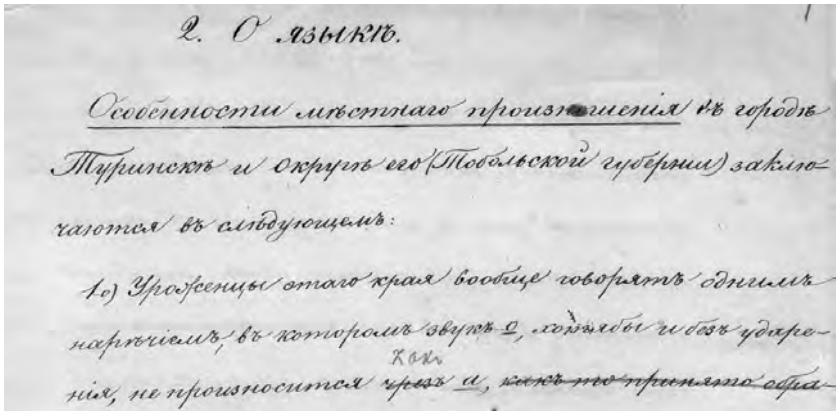 2. О языкѣ.
Особенности мѣстнаго произношенія въ городѣ
Туринскѣ и округѣ его (Тобольской губерніи) заклю-
чаются въ слѣдующемъ:
1.) Уроженцы этаго края вообще говорятъ однимъ
нарѣчіемъ, въ которомъ звукъ о, хотя бы и безъ ударе-
какъ
нія, не произносится чрезъ а, какъ то принято обра-